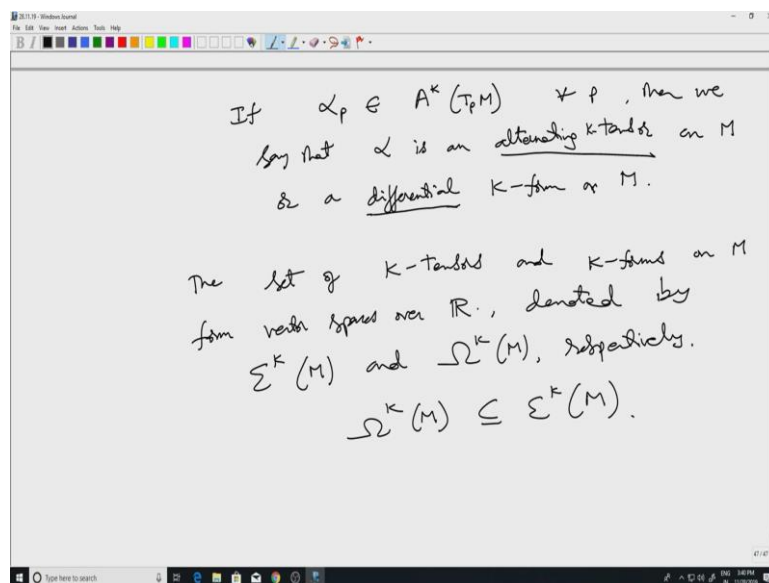 28.11.19 - Windows Journal
File Edit View Insert Actions Tools Help
B I
If α_p ∈ A^k (T_p M) ∀ p, then we
say that α is an alternating k-tensor on M
or a differential k-form on M.
The set of k-tensors and k-forms on M
form vector spaces over ℝ., denoted by
Σ^k (M) and Ω^k (M), respectively.
Ω^k (M) ⊆ Σ^k (M).
47 / 47
Type here to search
ENG 3:40 PM
IN